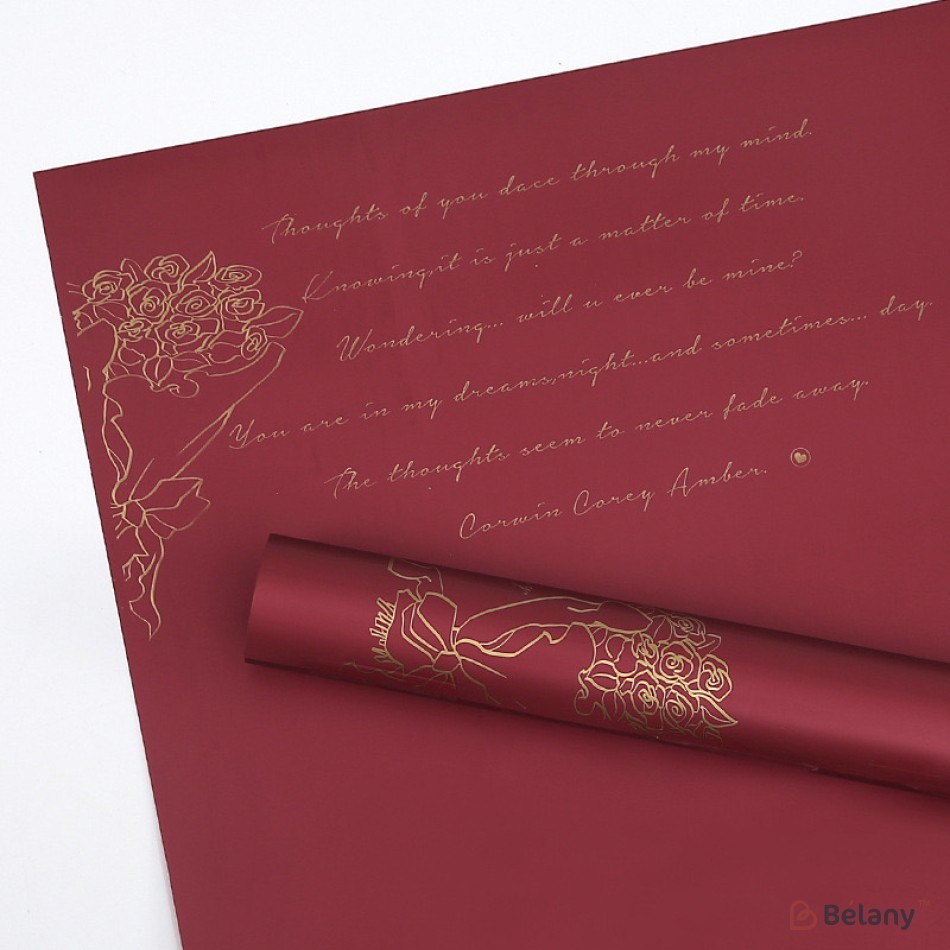 Thoughts of you dace through my mind.
Knowing,it is just a matter of time.
Wondering... will u ever be mine?
You are in my dreams,night...and sometimes... day.
The thoughts seem to never fade away.
Corwin Corey Amber.
Belany™